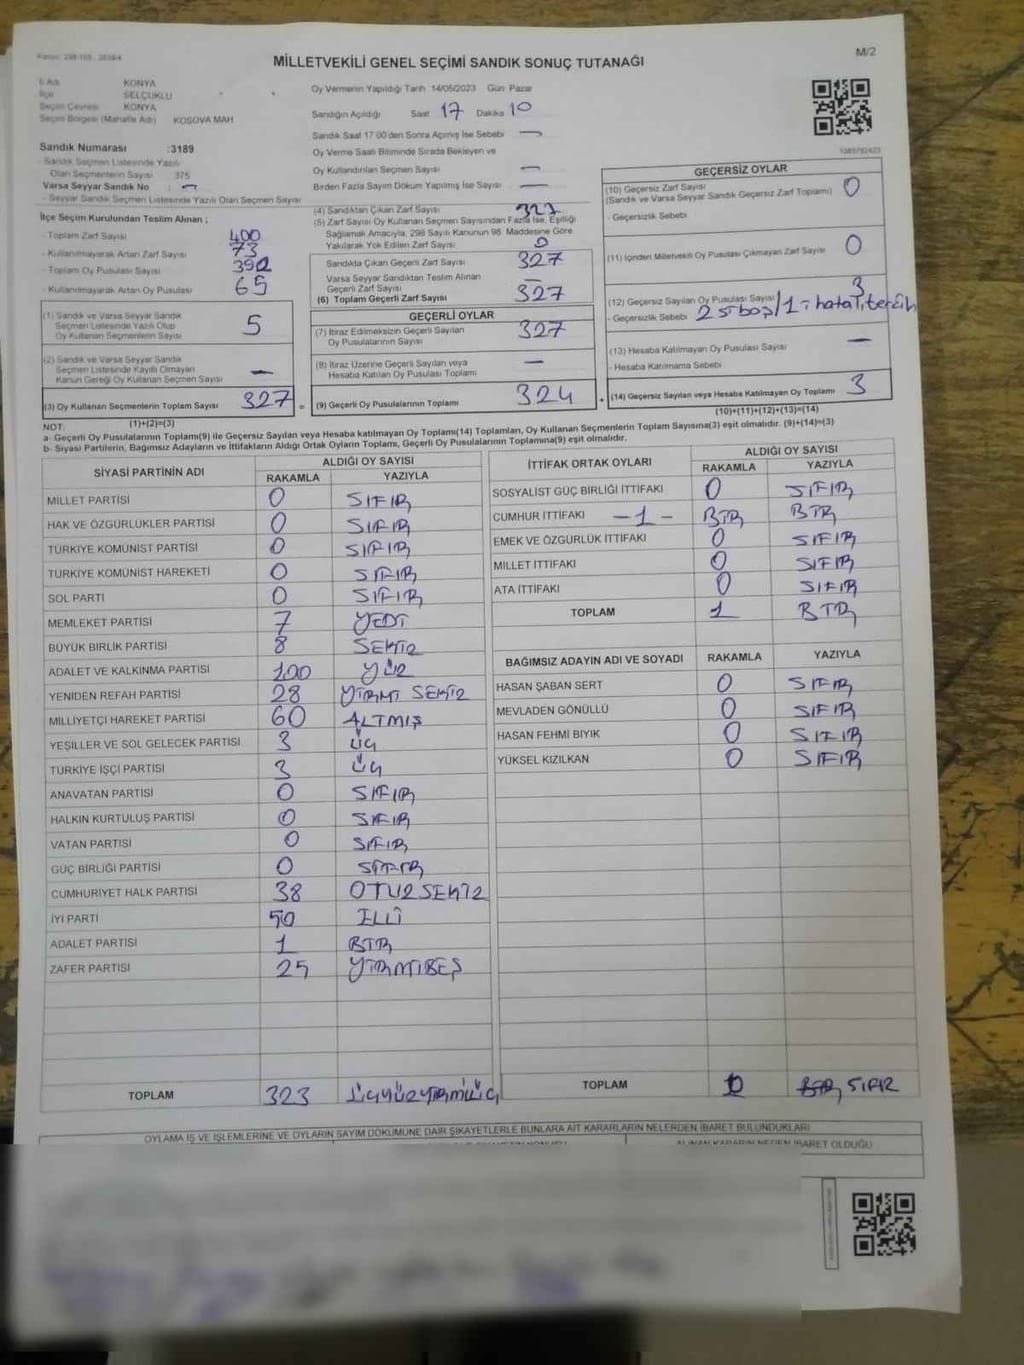 MİLLETVEKİLİ GENEL SEÇİMİ SANDIK SONUÇ TUTANAĞI
M/2
İl Adı KONYA
İlçe SELÇUKLU
Seçim Çevresi KONYA
Seçim Bölgesi (Mahalle Adı) KOSOVA MAH
Sandık Numarası :3189
Sandık Seçmen Listesinde Yazılı
Olan Seçmenlerin Sayısı 375
Varsa Seyyar Sandık No : -
- Seyyar Sandık Seçmen Listesinde Yazılı Olan Seçmen Sayısı
Oy Vermenin Yapıldığı Tarih 14/05/2023 Gün Pazar
Sandığın Açıldığı Saat 17 Dakika 10
Sandık Saat 17.00'den Sonra Açılmış İse Sebebi —
Oy Verme Saati Bitiminde Sırada Bekleyen ve
Oy Kullandırılan Seçmen Sayısı —
Birden Fazla Sayım Döküm Yapılmış İse Sayısı —
İlçe Seçim Kurulundan Teslim Alınan ;
- Toplam Zarf Sayısı 400
- Kullanılmayarak Artan Zarf Sayısı 73
- Toplam Oy Pusulası Sayısı 392
- Kullanılmayarak Artan Oy Pusulası 65
(1) Sandık ve Varsa Seyyar Sandık
Seçmen Listesinde Yazılı Olup
Oy Kullanan Seçmenlerin Sayısı 5
(2) Sandık ve Varsa Seyyar Sandık
Seçmen Listesinde Kaydı Olmayan
Kanun Gereği Oy Kullanan Seçmen Sayısı —
(3) Oy Kullanan Seçmenlerin Toplam Sayısı 327 =
(1)+(2)=(3)
(4) Sandıktan Çıkan Zarf Sayısı 327
(5) Zarf Sayısı Oy Kullanan Seçmen Sayısından Fazla İse, Eşitliği
Sağlamak Amacıyla, 298 Sayılı Kanunun 98. Maddesine Göre
Yakılarak Yok Edilen Zarf Sayısı 0
Sandıkta Çıkan Geçerli Zarf Sayısı 327
Varsa Seyyar Sandıktan Teslim Alınan
Geçerli Zarf Sayısı —
(6) Toplam Geçerli Zarf Sayısı 327
GEÇERLİ OYLAR
(7) İtiraz Edilmeksizin Geçerli Sayılan
Oy Pusulalarının Sayısı 327
(8) İtiraz Üzerine Geçerli Sayılan veya
Hesaba Katılan Oy Pusulası Toplamı —
(9) Geçerli Oy Pusulalarının Toplamı 324 +
GEÇERSİZ OYLAR
(10) Geçersiz Zarf Sayısı 0
(Sandık ve Varsa Seyyar Sandık Geçersiz Zarf Toplamı)
- Geçersizlik Sebebi
(11) İçinden Milletvekili Oy Pusulası Çıkmayan Zarf Sayısı 0
(12) Geçersiz Sayılan Oy Pusulası Sayısı 3
- Geçersizlik Sebebi 2 si boş/1 = hatalı tercih
(13) Hesaba Katılmayan Oy Pusulası Sayısı —
- Hesaba Katılmama Sebebi
(14) Geçersiz Sayılan veya Hesaba Katılmayan Oy Toplamı 3
(10)+(11)+(12)+(13)=(14)
NOT:
a- Geçerli Oy Pusulalarının Toplamı(9) ile Geçersiz Sayılan veya Hesaba katılmayan Oy Toplamı(14) Toplamları, Oy Kullanan Seçmenlerin Toplam Sayısına(3) eşit olmalıdır. (9)+(14)=(3)
b- Siyasi Partilerin, Bağımsız Adayların ve İttifakların Aldığı Ortak Oyların Toplamı, Geçerli Oy Pusulalarının Toplamına(9) eşit olmalıdır.
SİYASİ PARTİNİN ADI ALDIĞI OY SAYISI
RAKAMLA YAZIYLA
MİLLET PARTİSİ 0 SIFIR
HAK VE ÖZGÜRLÜKLER PARTİSİ 0 SIFIR
TÜRKİYE KOMÜNİST PARTİSİ 0 SIFIR
TÜRKİYE KOMÜNİST HAREKETİ 0 SIFIR
SOL PARTİ 0 SIFIR
MEMLEKET PARTİSİ 7 YEDİ
BÜYÜK BİRLİK PARTİSİ 8 SEKİZ
ADALET VE KALKINMA PARTİSİ 100 YÜZ
YENİDEN REFAH PARTİSİ 28 YİRMİ SEKİZ
MİLLİYETÇİ HAREKET PARTİSİ 60 ALTMIŞ
YEŞİLLER VE SOL GELECEK PARTİSİ 3 ÜÇ
TÜRKİYE İŞÇİ PARTİSİ 3 ÜÇ
ANAVATAN PARTİSİ 0 SIFIR
HALKIN KURTULUŞ PARTİSİ 0 SIFIR
VATAN PARTİSİ 0 SIFIR
GÜÇ BİRLİĞİ PARTİSİ 0 SIFIR
CUMHURİYET HALK PARTİSİ 38 OTUZSEKİZ
İYİ PARTİ 50 ELLİ
ADALET PARTİSİ 1 BİR
ZAFER PARTİSİ 25 YİRMİBEŞ
TOPLAM 323 ÜÇYÜZYİRMİÜÇ
İTTİFAK ORTAK OYLARI ALDIĞI OY SAYISI
RAKAMLA YAZIYLA
SOSYALİST GÜÇ BİRLİĞİ İTTİFAKI 0 SIFIR
CUMHUR İTTİFAKI -1- BİR BİR
EMEK VE ÖZGÜRLÜK İTTİFAKI 0 SIFIR
MİLLET İTTİFAKI 0 SIFIR
ATA İTTİFAKI 0 SIFIR
TOPLAM 1 BİR
BAĞIMSIZ ADAYIN ADI VE SOYADI RAKAMLA YAZIYLA
HASAN ŞABAN SERT 0 SIFIR
MEVLADEN GÖNÜLLÜ 0 SIFIR
HASAN FEHMİ BIYIK 0 SIFIR
YÜKSEL KIZILKAN 0 SIFIR
TOPLAM 0 BİR SIFIR
OYLAMA İŞ VE İŞLEMLERİNE VE OYLARIN SAYIM DÖKÜMÜNE DAİR ŞİKAYETLERLE BUNLARA AİT KARARLARIN NELERDEN İBARET BULUNDUKLARI
ALINAN KARARIN NEDEN İBARET OLDUĞU